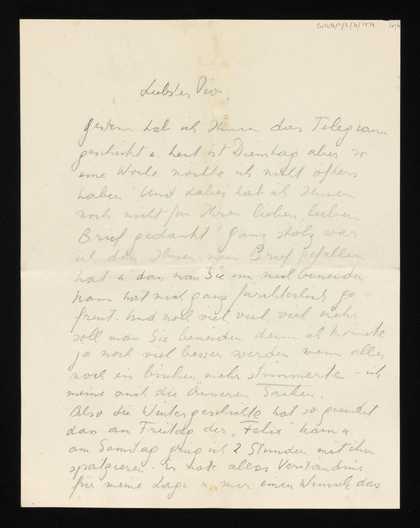 Liebster Pico,
gestern hab ich Ihnen das Telegram
geschickt u. heut ist Dienstag aber so
eine Woche möchte ich nicht öfters
haben. Und dabei hab ich Ihnen
noch nicht für Ihren lieben, lieben
Brief gedankt! ganz stolz war
ich dass Ihnen mein Brief gefallen
hat u. dass man Sie um mich beneiden
kann hat mich ganz fürchterlich ge-
freut. Und noch viel viel viel mehr
soll man Sie beneiden denn ich könnte
ja noch viel besser werden wenn alles
noch ein bischen mehr stimmerte - ich
meine auch die äusseren Sachen.
Also die Wintergeschichte hat so geendet
dass am Freitag der "Felix" kam u.
am Samstag ging ich 2 Stunden mit ihm
spatzieren. Er hat alles Verständnis
für meine Lage u. nur einen Wunsch das